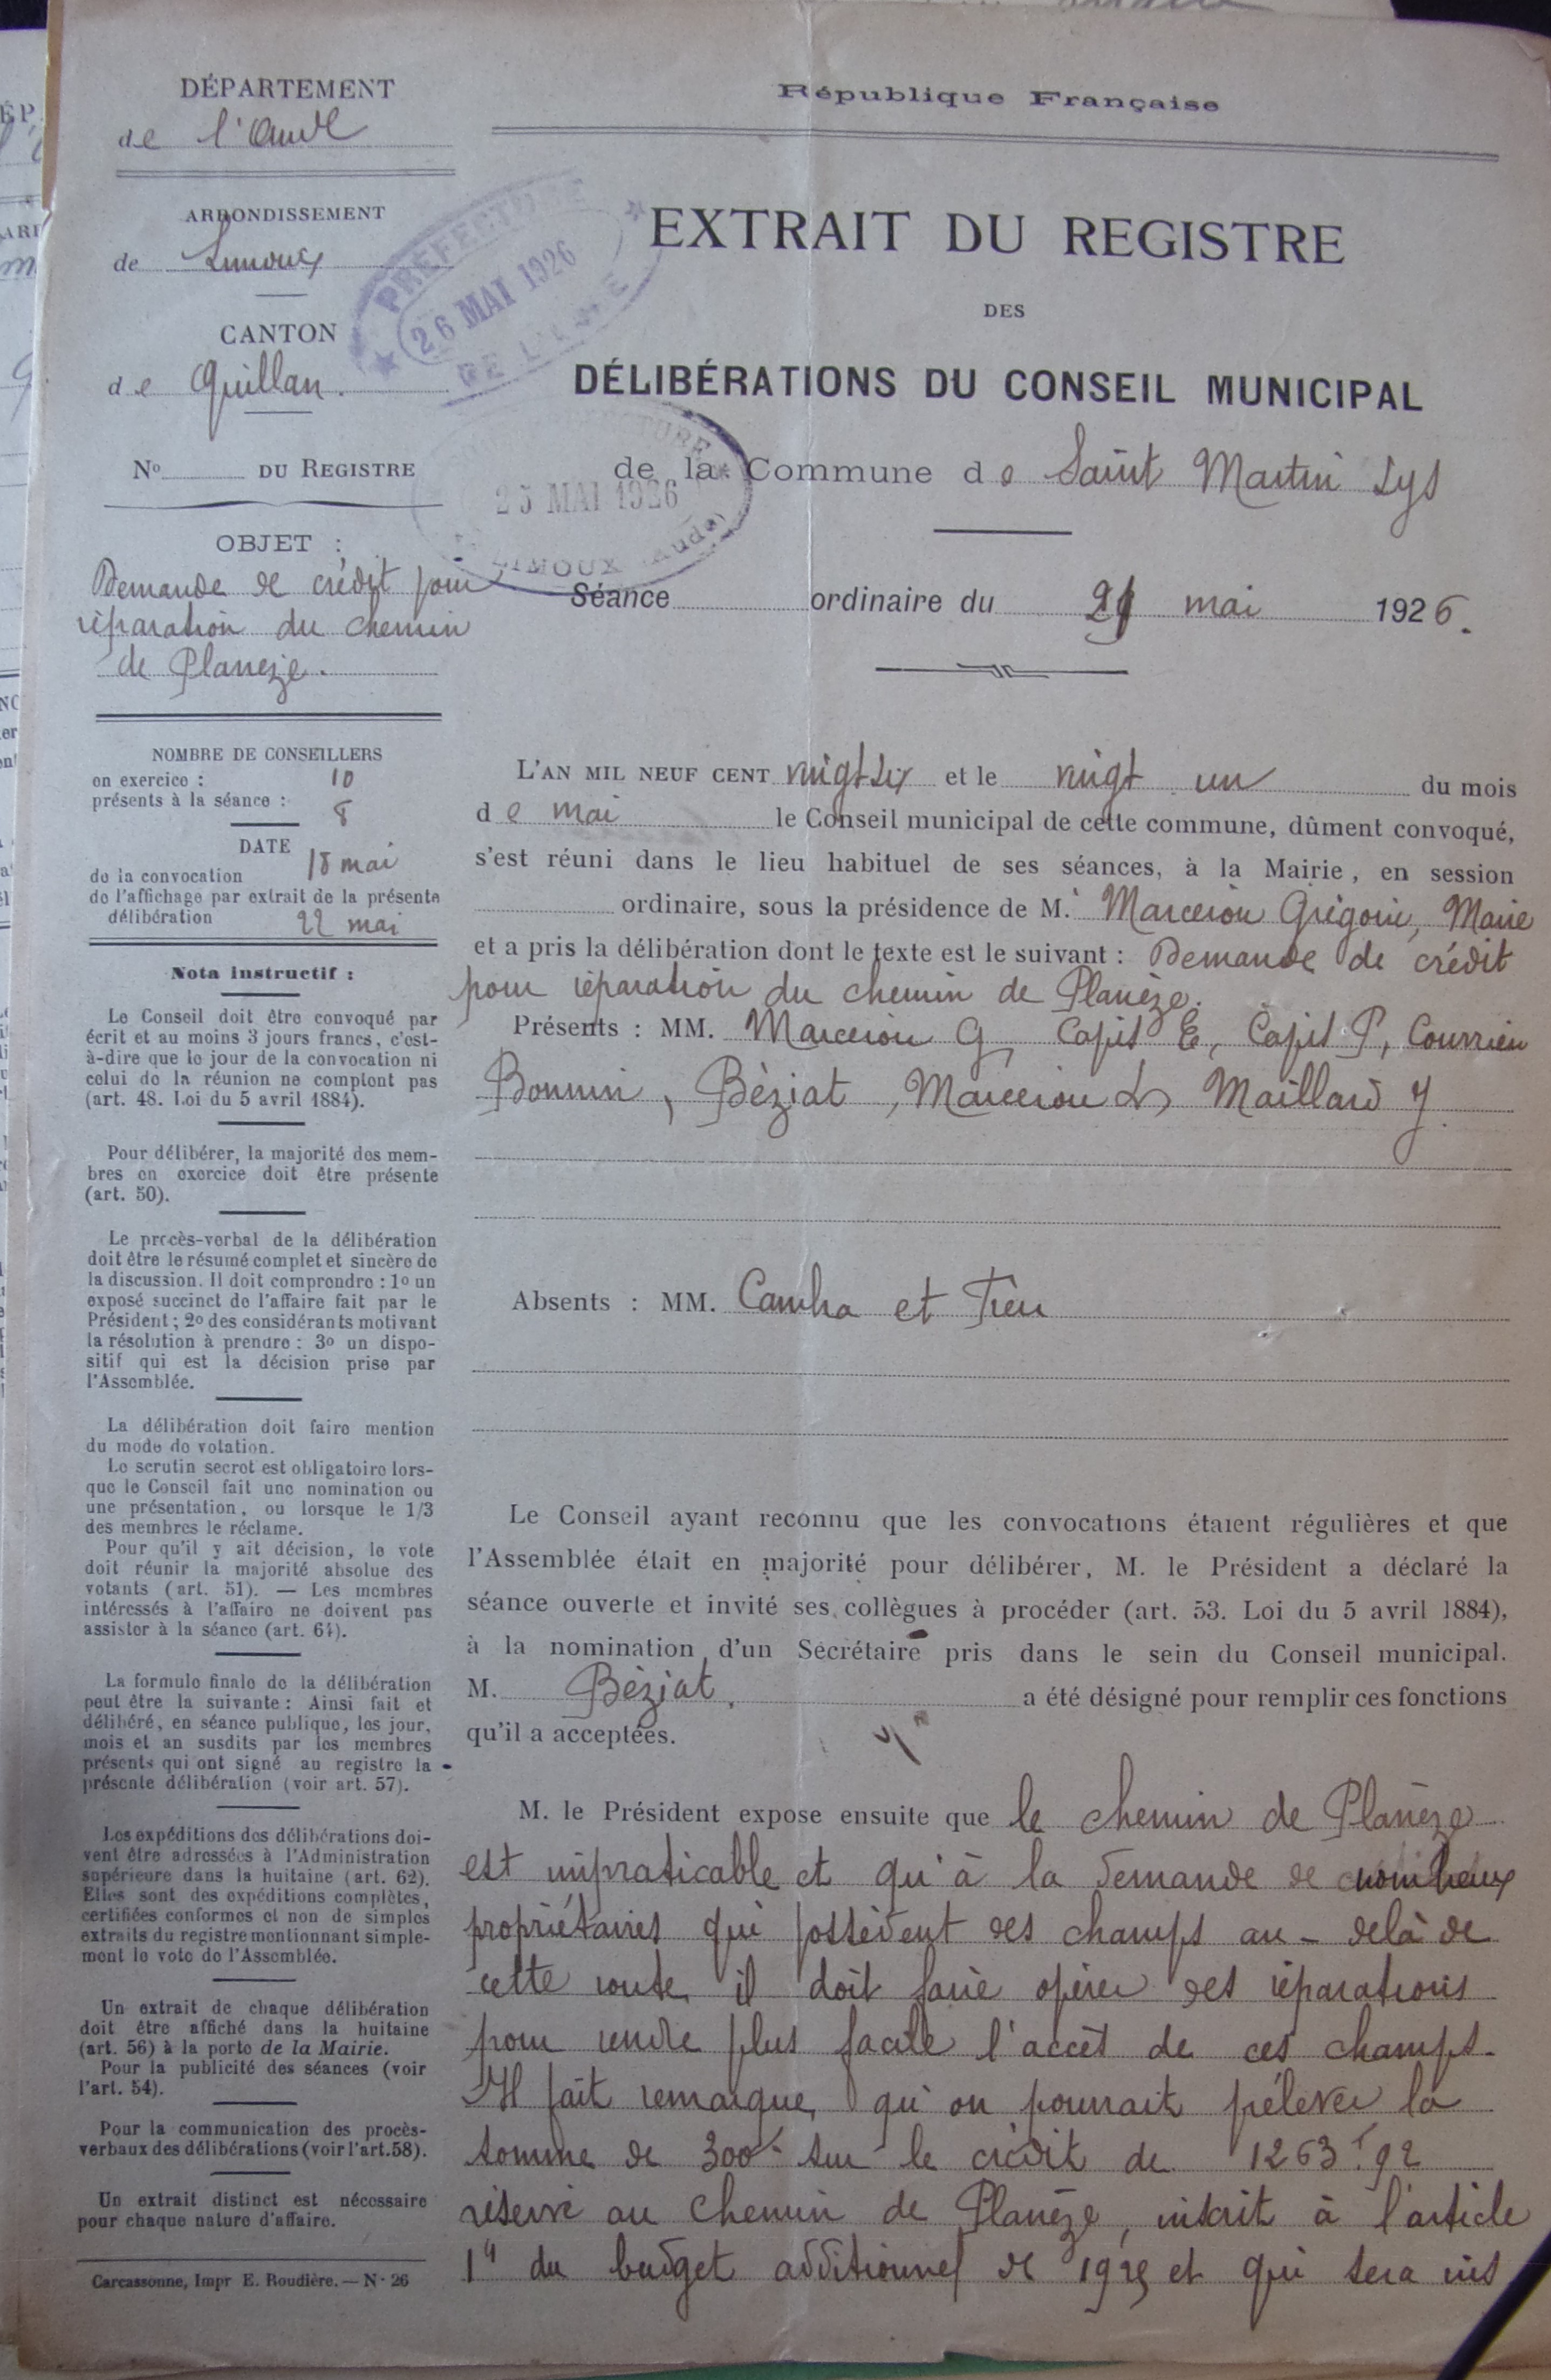 République Française
EXTRAIT DU REGISTRE
DES
DÉLIBÉRATIONS DU CONSEIL MUNICIPAL
de la Commune de Saint Martin Lys
Séance ordinaire du 21 mai 1926.
DÉPARTEMENT
de l'Aude
ARRONDISSEMENT
de Limoux
CANTON
de Quillan.
No DU REGISTRE
PRÉFECTURE
26 MAI 1926
DE L'AUDE
25 MAI 1926
LIMOUX (Aude)
OBJET :
Demande de crédit pour
réparation du chemin
de Planèze.
NOMBRE DE CONSEILLERS
en exercice : 10
présents à la séance : 8
DATE
de la convocation 18 mai
de l'affichage par extrait de la présente
délibération 22 mai
Nota instructif :
Le Conseil doit être convoqué par
écrit et au moins 3 jours francs, c'est-
à-dire que le jour de la convocation ni
celui de la réunion ne comptent pas
(art. 48. Loi du 5 avril 1884).
Pour délibérer, la majorité des mem-
bres en exercice doit être présente
(art. 50).
Le procès-verbal de la délibération
doit être le résumé complet et sincère de
la discussion. Il doit comprendre : 1o un
exposé succinct de l'affaire fait par le
Président ; 2o des considérants motivant
la résolution à prendre : 3o un dispo-
sitif qui est la décision prise par
l'Assemblée.
La délibération doit faire mention
du mode de votation.
Le scrutin secret est obligatoire lors-
que le Conseil fait une nomination ou
une présentation, ou lorsque le 1/3
des membres le réclame.
Pour qu'il y ait décision, le vote
doit réunir la majorité absolue des
votants (art. 51). — Les membres
intéressés à l'affaire ne doivent pas
assister à la séance (art. 64).
La formule finale de la délibération
peut être la suivante : Ainsi fait et
délibéré, en séance publique, les jour,
mois et an susdits par les membres
présents qui ont signé au registre la
présente délibération (voir art. 57).
Les expéditions des délibérations doi-
vent être adressées à l'Administration
supérieure dans la huitaine (art. 62).
Elles sont des expéditions complètes,
certifiées conformes et non de simples
extraits du registre mentionnant simple-
ment le vote de l'Assemblée.
Un extrait de chaque délibération
doit être affiché dans la huitaine
(art. 56) à la porte de la Mairie.
Pour la publicité des séances (voir
l'art. 54).
Pour la communication des procès-
verbaux des délibérations (voir l'art. 58).
Un extrait distinct est nécessaire
pour chaque nature d'affaire.
Carcassonne, Impr E. Roudière. — N- 26
L'AN MIL NEUF CENT vingt six et le vingt un du mois
de mai le Conseil municipal de cette commune, dûment convoqué,
s'est réuni dans le lieu habituel de ses séances, à la Mairie, en session
ordinaire, sous la présidence de M. Marcerou Grégoire, Maire
et a pris la délibération dont le texte est le suivant : Demande de crédit
pour réparation du chemin de Planèze.
Présents : MM. Marcerou G, Capil E, Capil P, Courrieu
Bonnin, Béziat, Marcerou L, Maillard J.
Absents : MM. et
Le Conseil ayant reconnu que les convocations étaient régulières et que
l'Assemblée était en majorité pour délibérer, M. le Président a déclaré la
séance ouverte et invité ses collègues à procéder (art. 53. Loi du 5 avril 1884),
à la nomination d'un Secrétaire pris dans le sein du Conseil municipal.
M. Béziat, a été désigné pour remplir ces fonctions
qu'il a acceptées.
M. le Président expose ensuite que le chemin de Planèze
est impraticable et qu'à la demande de nombreux
propriétaires qui possèdent des champs au-delà de
cette route, il doit faire opérer des réparations
pour rendre plus facile l'accès de ces champs.
Il fait remarquer qu'on pourrait prélever la
somme de 300f sur le crédit de 1263f.92
réservé au chemin de Planèze, inscrit à l'article
14 du budget additionnel de 1925 et qui sera ins